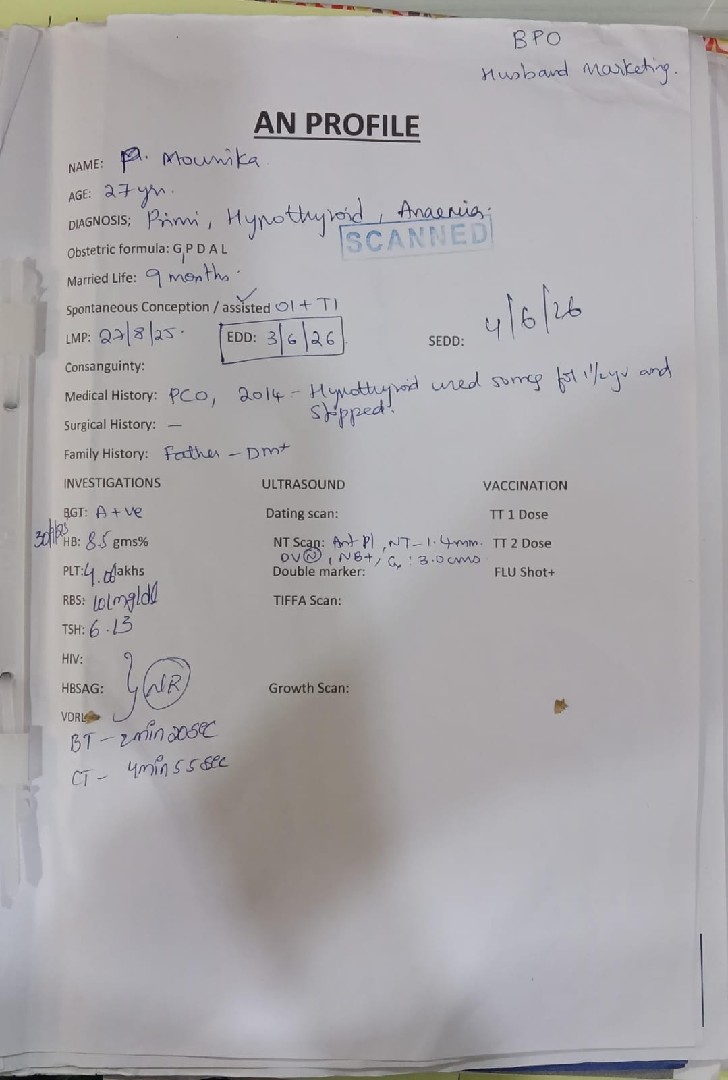 BPO
Husband Marketing.
AN PROFILE
NAME: P. Mounika.
AGE: 27 yr.
DIAGNOSIS; Primi, Hypothyroid, Anaemia.
SCANNED
Obstetric formula: G P D A L
Married Life: 9 months.
Spontaneous Conception / assisted ✓ OI + TI
LMP: 27/8/25. EDD: 3/6/26 SEDD: 4/6/26
Consanguinty:
Medical History: PCO, 2014 - Hypothyroid used 50mcg for 1 1/2 yr and
stopped.
Surgical History: —
Family History: Father - Dm+
INVESTIGATIONS ULTRASOUND VACCINATION
BGT: A +ve Dating scan: TT 1 Dose
HB: 8.5 gms% NT Scan: Ant Pl, NT - 1.4mm. TT 2 Dose
DV (N), NB+, Cx : 3.0cms
PLT: lakhs Double marker: FLU Shot+
RBS: 101mg/dl TIFFA Scan:
TSH: 6.13
HIV:
HBSAG: } NR Growth Scan:
VDRL
BT - 2min 20sec
CT - 4min 55sec